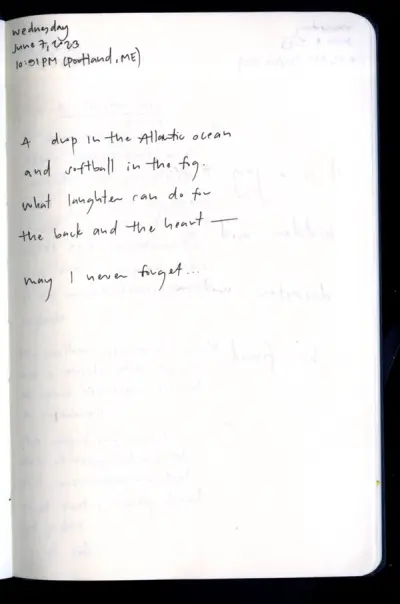 wednesday
June 7, 2023
10:51 PM (Portland, ME)
A dip in the Atlantic ocean
and softball in the fog.
what laughter can do for
the back and the heart —
may I never forget...